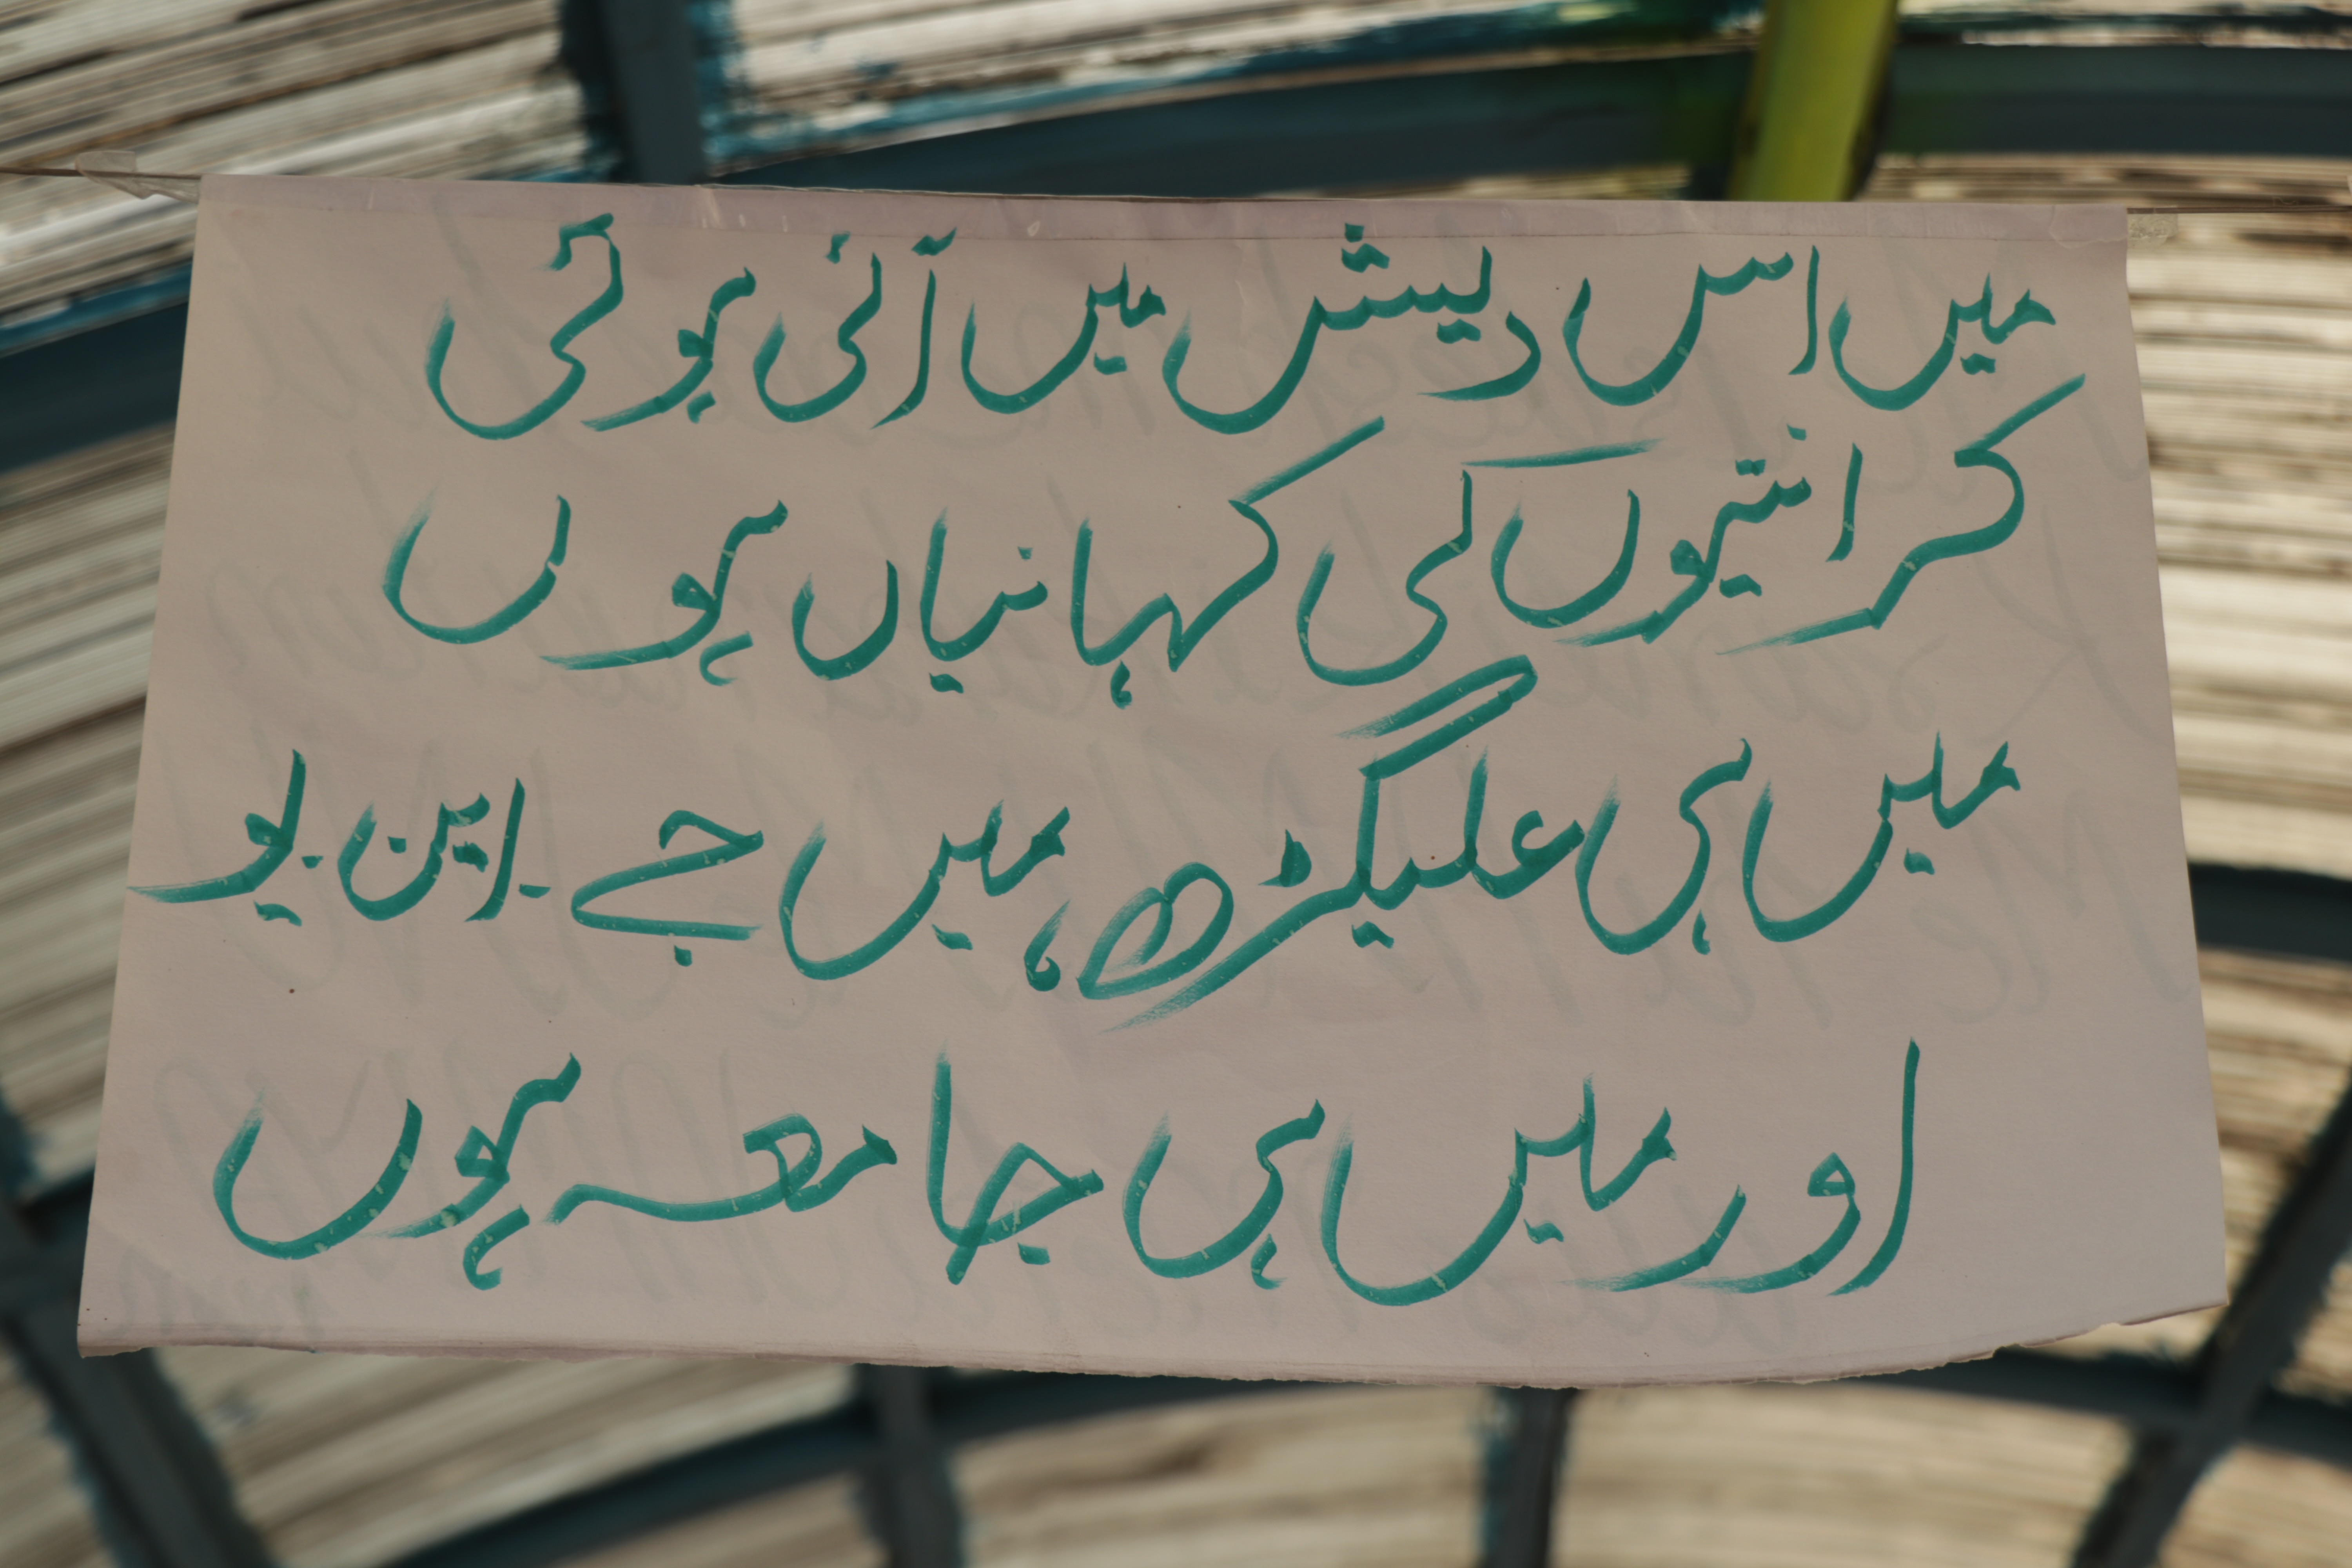 میں اس دیش میں آئی ہوئی
کرانتیوں کی کہانیاں ہوں
میں ہی علیگڑھ، میں جے۔این۔یو
اور میں ہی جامعہ ہوں